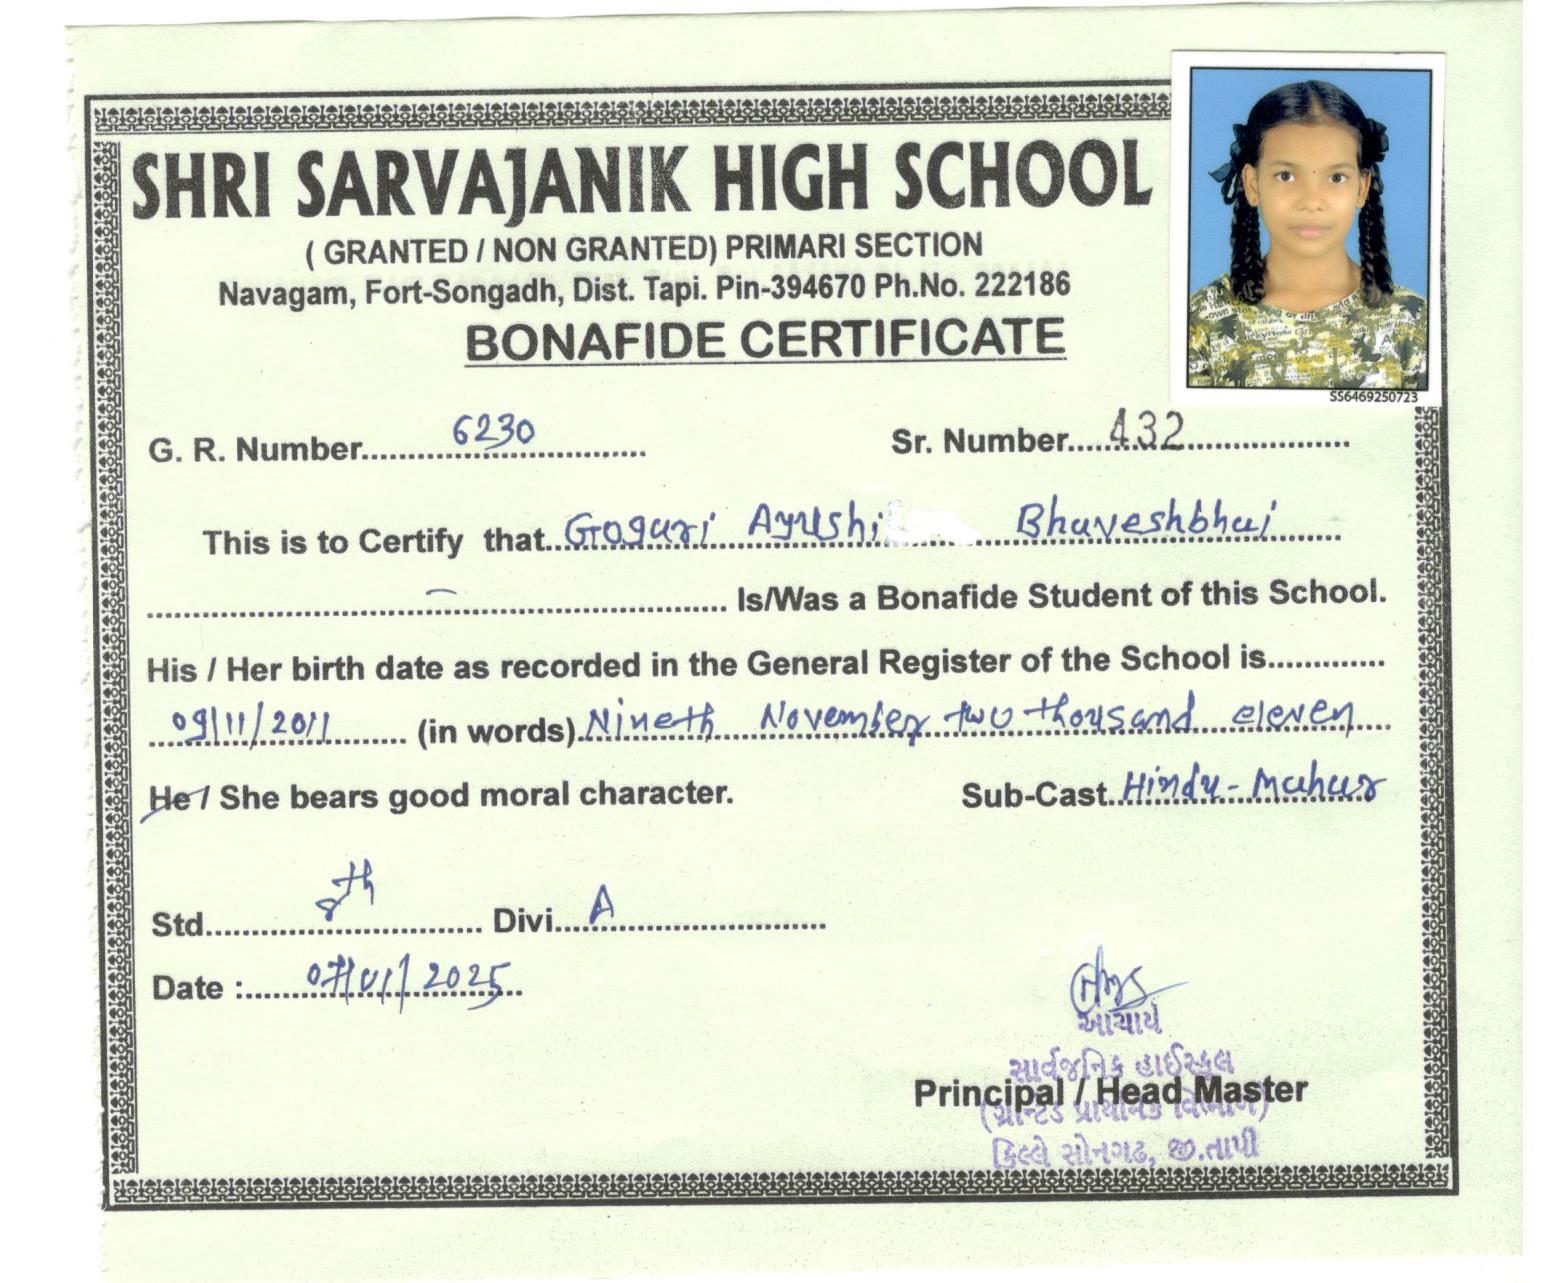 SHRI SARVAJANIK HIGH SCHOOL
( GRANTED / NON GRANTED) PRIMARI SECTION
Navagam, Fort-Songadh, Dist. Tapi. Pin-394670 Ph.No. 222186
BONAFIDE CERTIFICATE
SS6469250723
G. R. Number 6230 Sr. Number 432
This is to Certify that Gogari Ayushi Bhaveshbhai
Is/Was a Bonafide Student of this School.
His / Her birth date as recorded in the General Register of the School is
09/11/2011 (in words) Nineth November two thousand eleven
He / She bears good moral character. Sub-Cast Hindu - Mahar
Std 8th Divi A
Date : 07/01/2025
આચાર્ય
સાર્વજનિક હાઈસ્કૂલ
Principal / Head Master
(ગ્રાન્ટેડ પ્રાથમિક વિભાગ)
કિલ્લે સોનગઢ, જી.તાપી